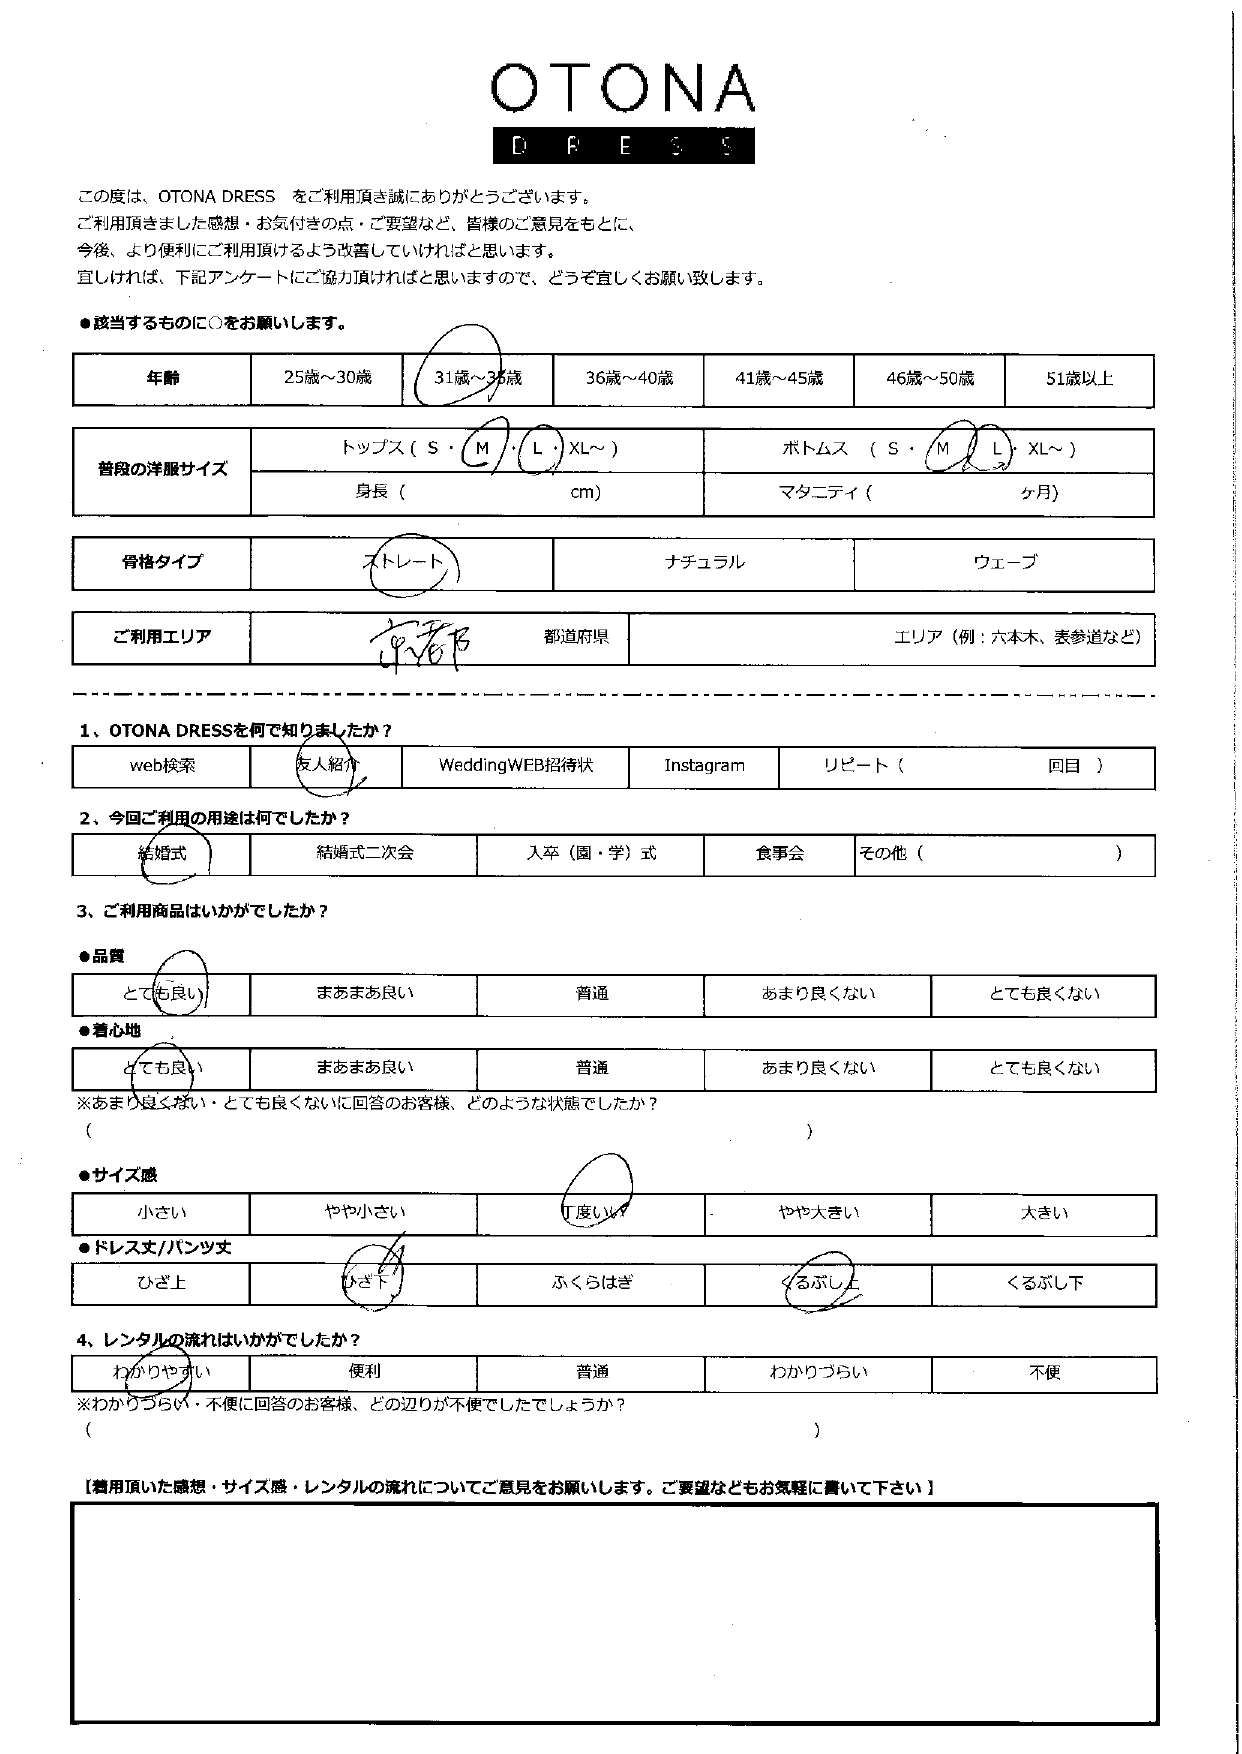 OTONA
DRESS
この度は、OTONA DRESS　をご利用頂き誠にありがとうございます。
ご利用頂きました感想・お気付きの点・ご要望など、皆様のご意見をもとに、
今後、より便利にご利用頂けるよう改善していければと思います。
宜しければ、下記アンケートにご協力頂ければと思いますので、どうぞ宜しくお願い致します。
●該当するものに○をお願いします。
年齢 25歳～30歳 31歳～35歳 36歳～40歳 41歳～45歳 46歳～50歳 51歳以上
普段の洋服サイズ トップス ( S ・ M ・ L ・ XL～ ) ボトムス ( S ・ M ・ L ・ XL～ )
身長 ( cm) マタニティ ( ヶ月)
骨格タイプ ストレート ナチュラル ウェーブ
ご利用エリア 京都 都道府県 エリア（例：六本木、表参道など）
1、OTONA DRESSを何で知りましたか？
web検索 友人紹介 WeddingWEB招待状 Instagram リピート（ 回目 ）
2、今回ご利用の用途は何でしたか？
結婚式 結婚式二次会 入卒（園・学）式 食事会 その他（ ）
3、ご利用商品はいかがでしたか？
●品質
とても良い まあまあ良い 普通 あまり良くない とても良くない
●着心地
とても良い まあまあ良い 普通 あまり良くない とても良くない
※あまり良くない・とても良くないに回答のお客様、どのような状態でしたか？
( )
●サイズ感
小さい やや小さい 丁度いい やや大きい 大きい
●ドレス丈/パンツ丈
ひざ上 ひざ下 ふくらはぎ くるぶし上 くるぶし下
4、レンタルの流れはいかがでしたか？
わかりやすい 便利 普通 わかりづらい 不便
※わかりづらい・不便に回答のお客様、どの辺りが不便でしたでしょうか？
( )
【着用頂いた感想・サイズ感・レンタルの流れについてご意見をお願いします。ご要望などもお気軽に書いて下さい】